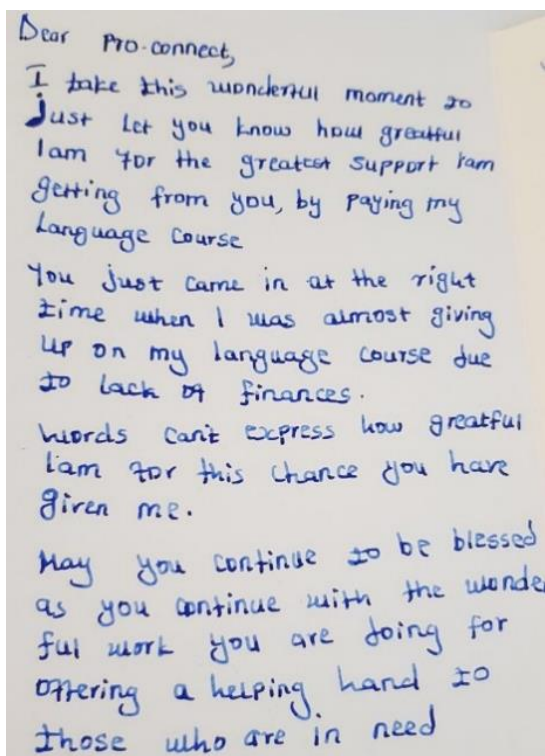 Dear Pro-connect,
I take this wonderful moment to
just let you know how greatful
Iam for the greatest support Iam
getting from you, by paying my
Language course
You just came in at the right
time when I was almost giving
up on my language course due
to lack of finances.
Words can't express how greatful
I'am for this chance you have
given me.
May you continue to be blessed
as you continue with the wonder
ful work you are doing for
offering a helping hand to
those who are in need